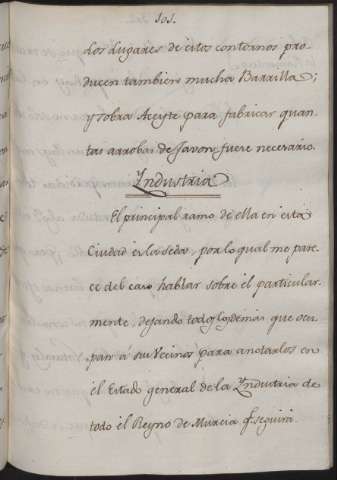 101.
los Lugares de estos contornos pro-
ducen tambien mucha Barrilla;
y sobra Aceyte para fabricar quan-
tas arrobas de Javon fuere necesario.
Yndustria
El principal ramo de ella en esta
Ciudad es la seda, por lo qual me pare-
ce del caso hablar sobre èl particular-
mente, dejando todos los demàs que ocu-
pan à sus Vecinos para anotarlos en
el Estado general de la Yndustria de
todo el Reyno de Murcia q.e seguirà.